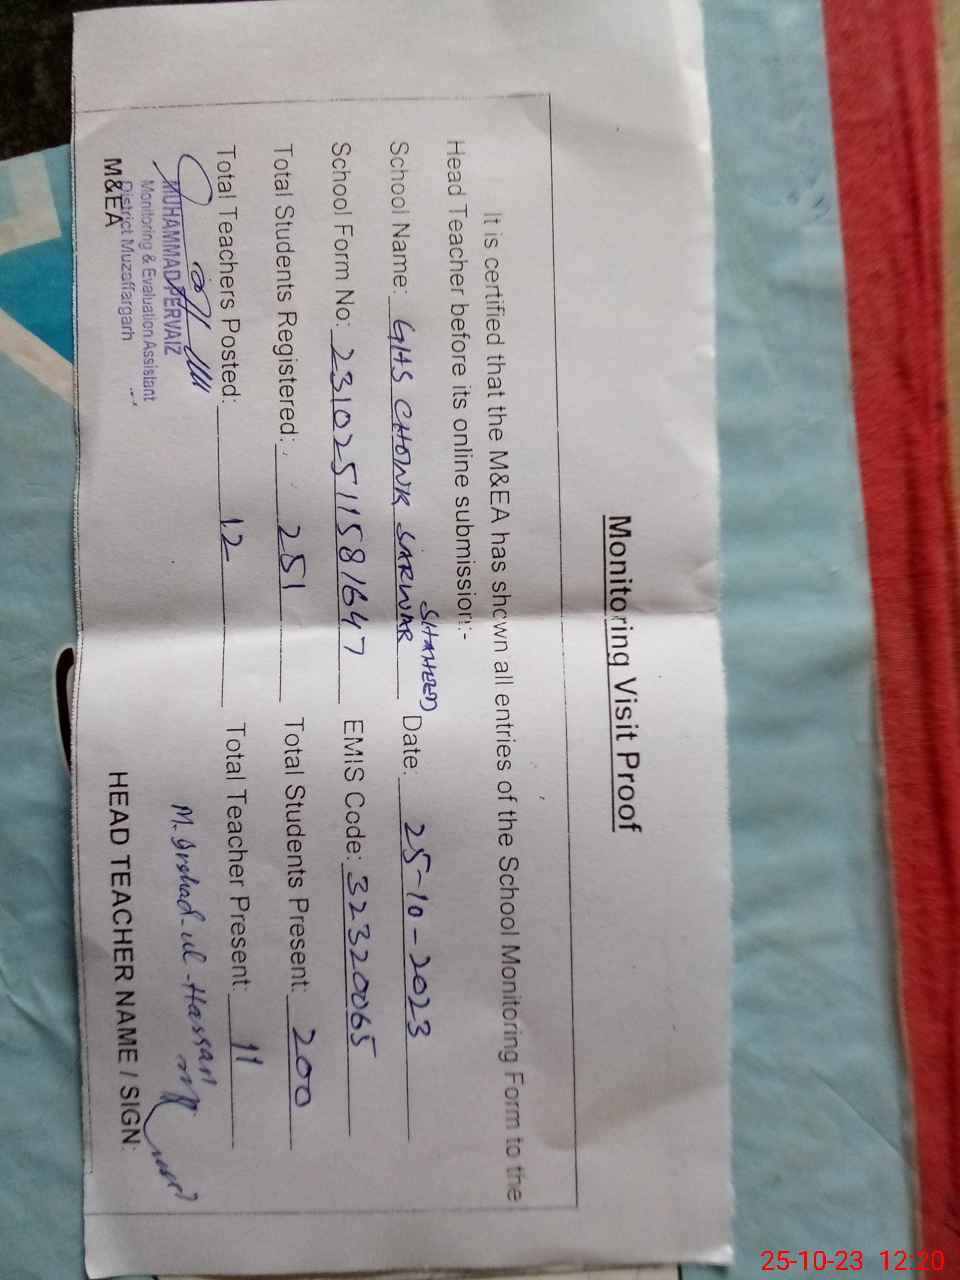 Monitoring Visit Proof
It is certified that the M&EA has shown all entries of the School Monitoring Form to the
Head Teacher before its online submission:-
School Name: GHS CHOWK SARWAR SHAHEED Date: 25-10-2023
School Form No: 23102511581647 EMIS Code: 32320065
Total Students Registered: 251 Total Students Present: 200
Total Teachers Posted: 12 Total Teacher Present: 11
MUHAMMAD PERVAIZ
Monitoring & Evaluation Assistant
District Muzaffargarh
M&EA
M. Arshad-ul-Hassan
HEAD TEACHER NAME / SIGN:
25-10-23 12:20